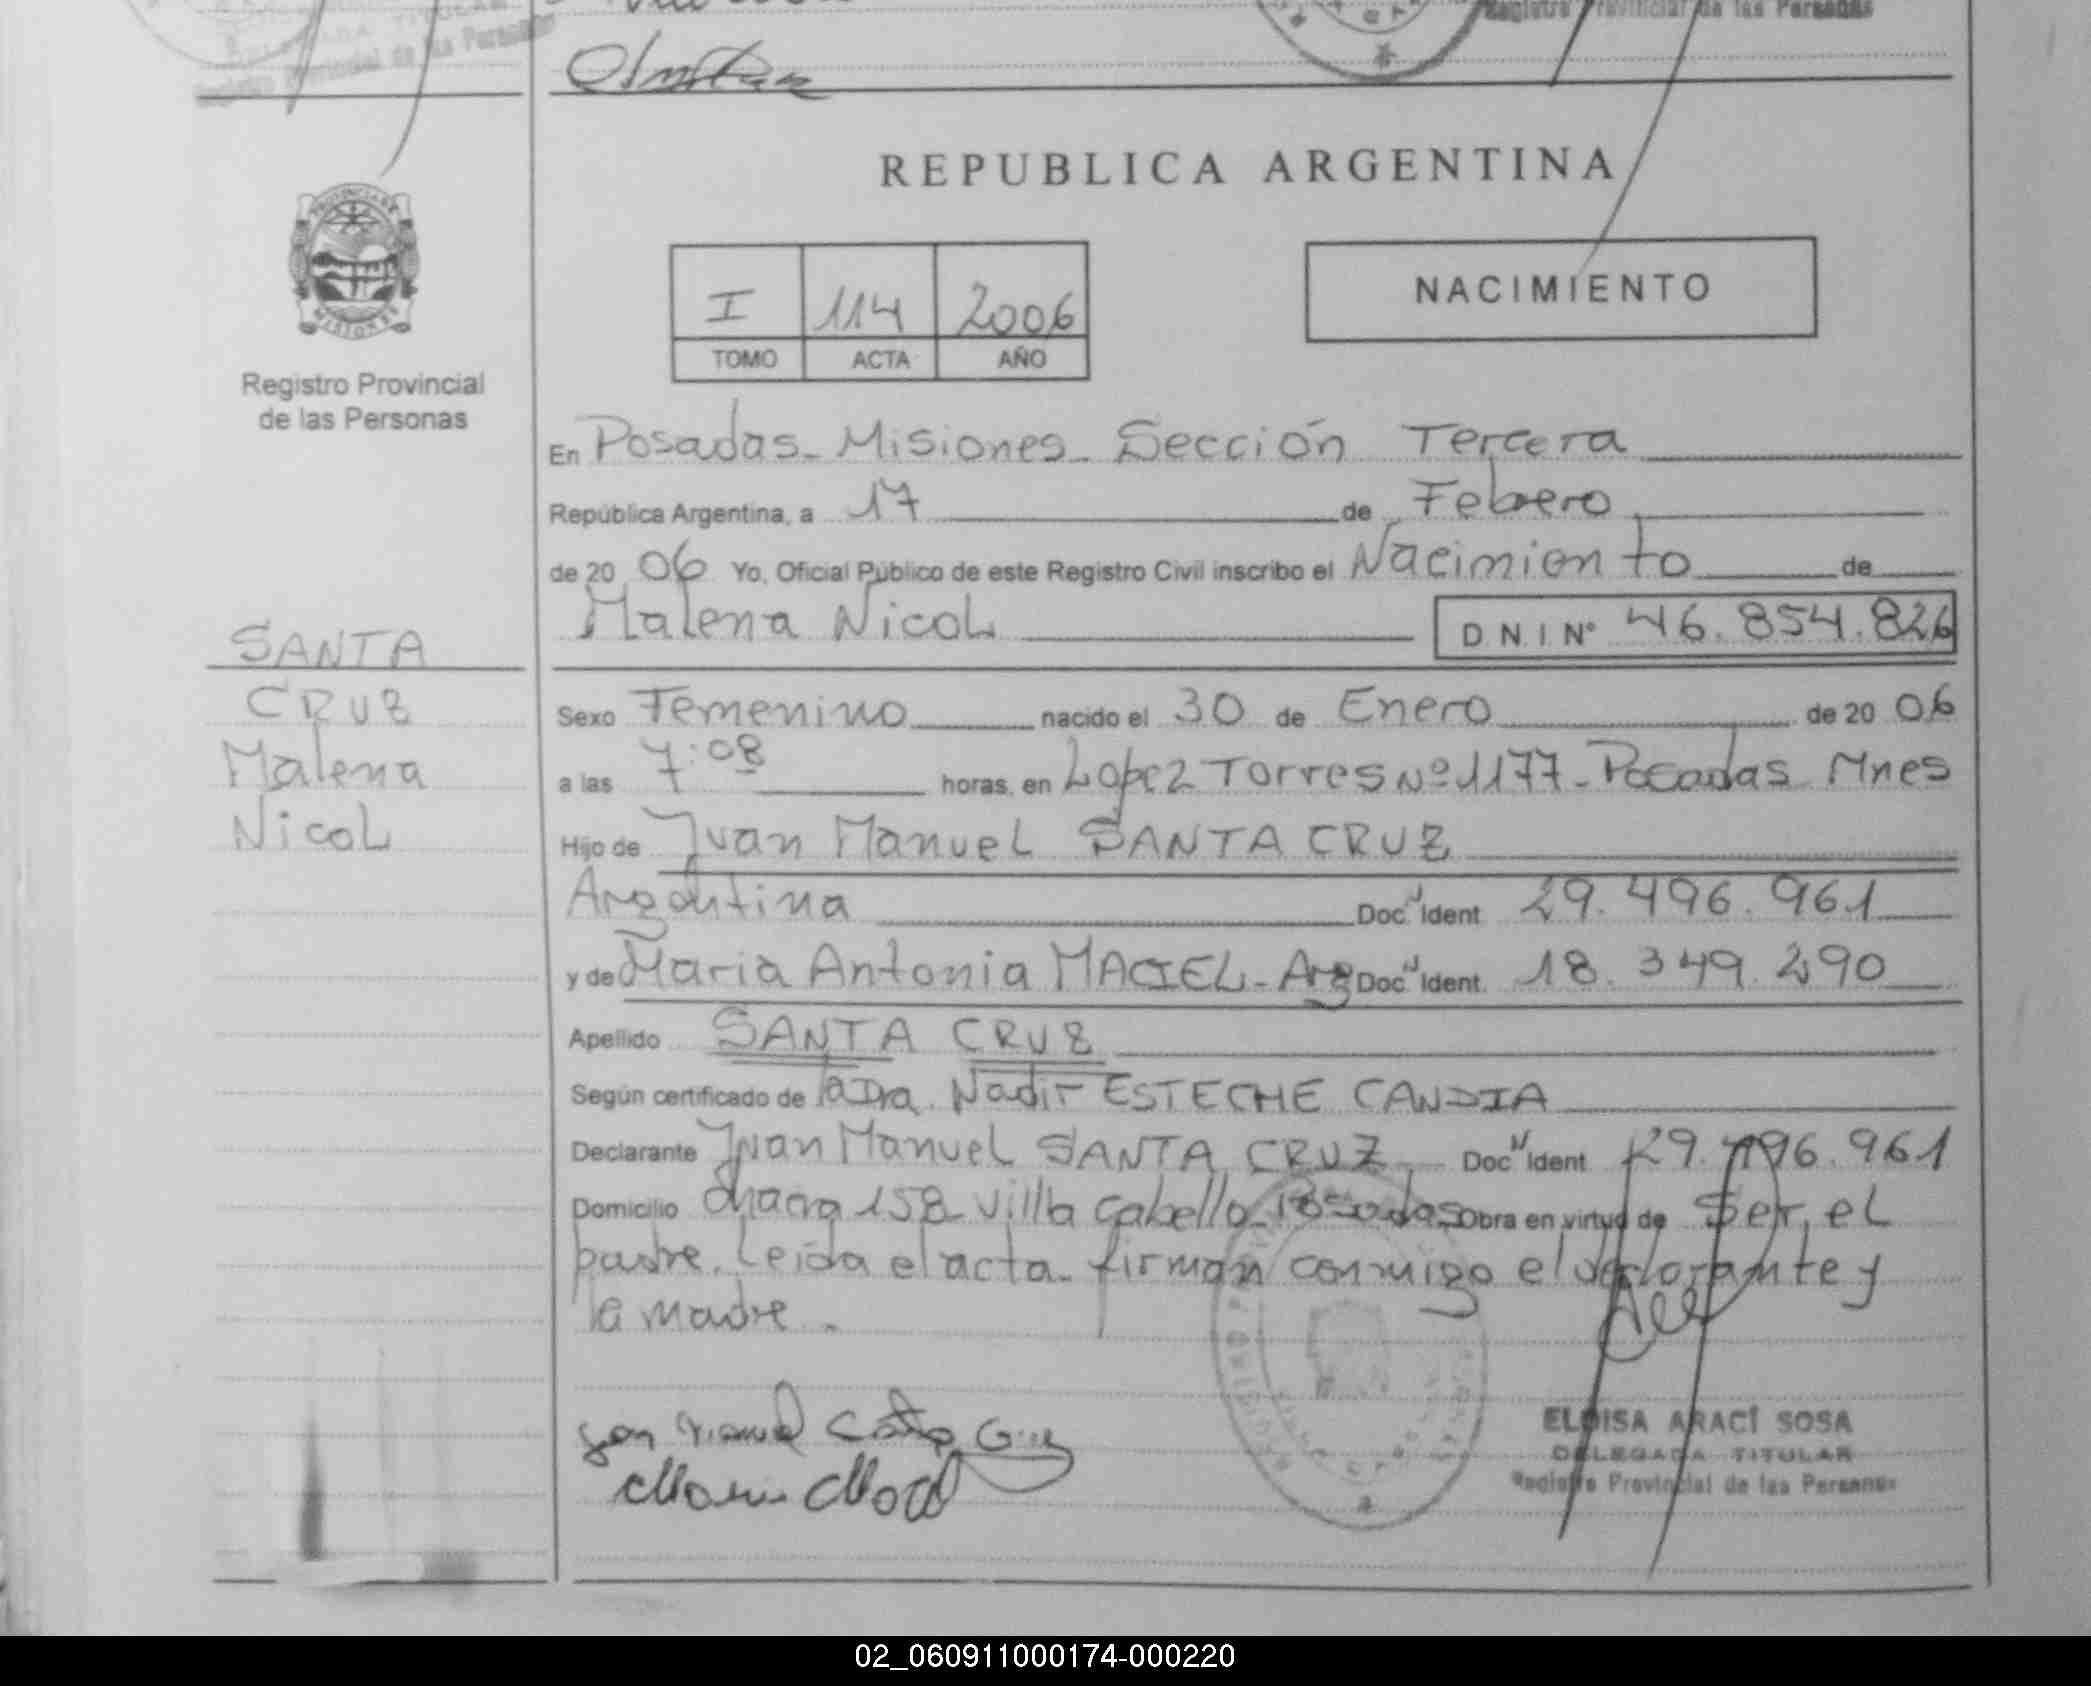 DELEGADA TITULAR
Registro Provincial de las Personas
Registro Provincial de las Personas
REPUBLICA ARGENTINA
PROVINCIA DE
MISIONES
I 114 2006
TOMO ACTA AÑO
NACIMIENTO
Registro Provincial
de las Personas
En Posadas - Misiones - Sección Tercera
República Argentina, a 17 de Febrero
de 20 06 Yo, Oficial Público de este Registro Civil inscribo el Nacimiento de
Malena Nicol D.N.I Nº 46.854.826
SANTA
CRUZ
Malena
Nicol
Sexo Femenino nacido el 30 de Enero de 20 06
a las 7:08 horas, en Lopez Torres Nº 1177 - Posadas Mnes
Hijo de Juan Manuel SANTA CRUZ
Argentina Doc. Ident 29.496.961
y de Maria Antonia MACIEL - Arg Doc. Ident. 18.349.290
Apellido SANTA CRUZ
Según certificado de la Dra. Nadir ESTECHE CANDIA
Declarante Juan Manuel SANTA CRUZ Doc. Ident 29.496.961
Domicilio chacra 158 Villa Cabello - Posadas Obra en virtud de Ser el
padre. Leida el acta - firman conmigo el declarante y
la madre.
ELOISA ARACÍ SOSA
DELEGADA TITULAR
Registro Provincial de las Personas
02_060911000174-000220